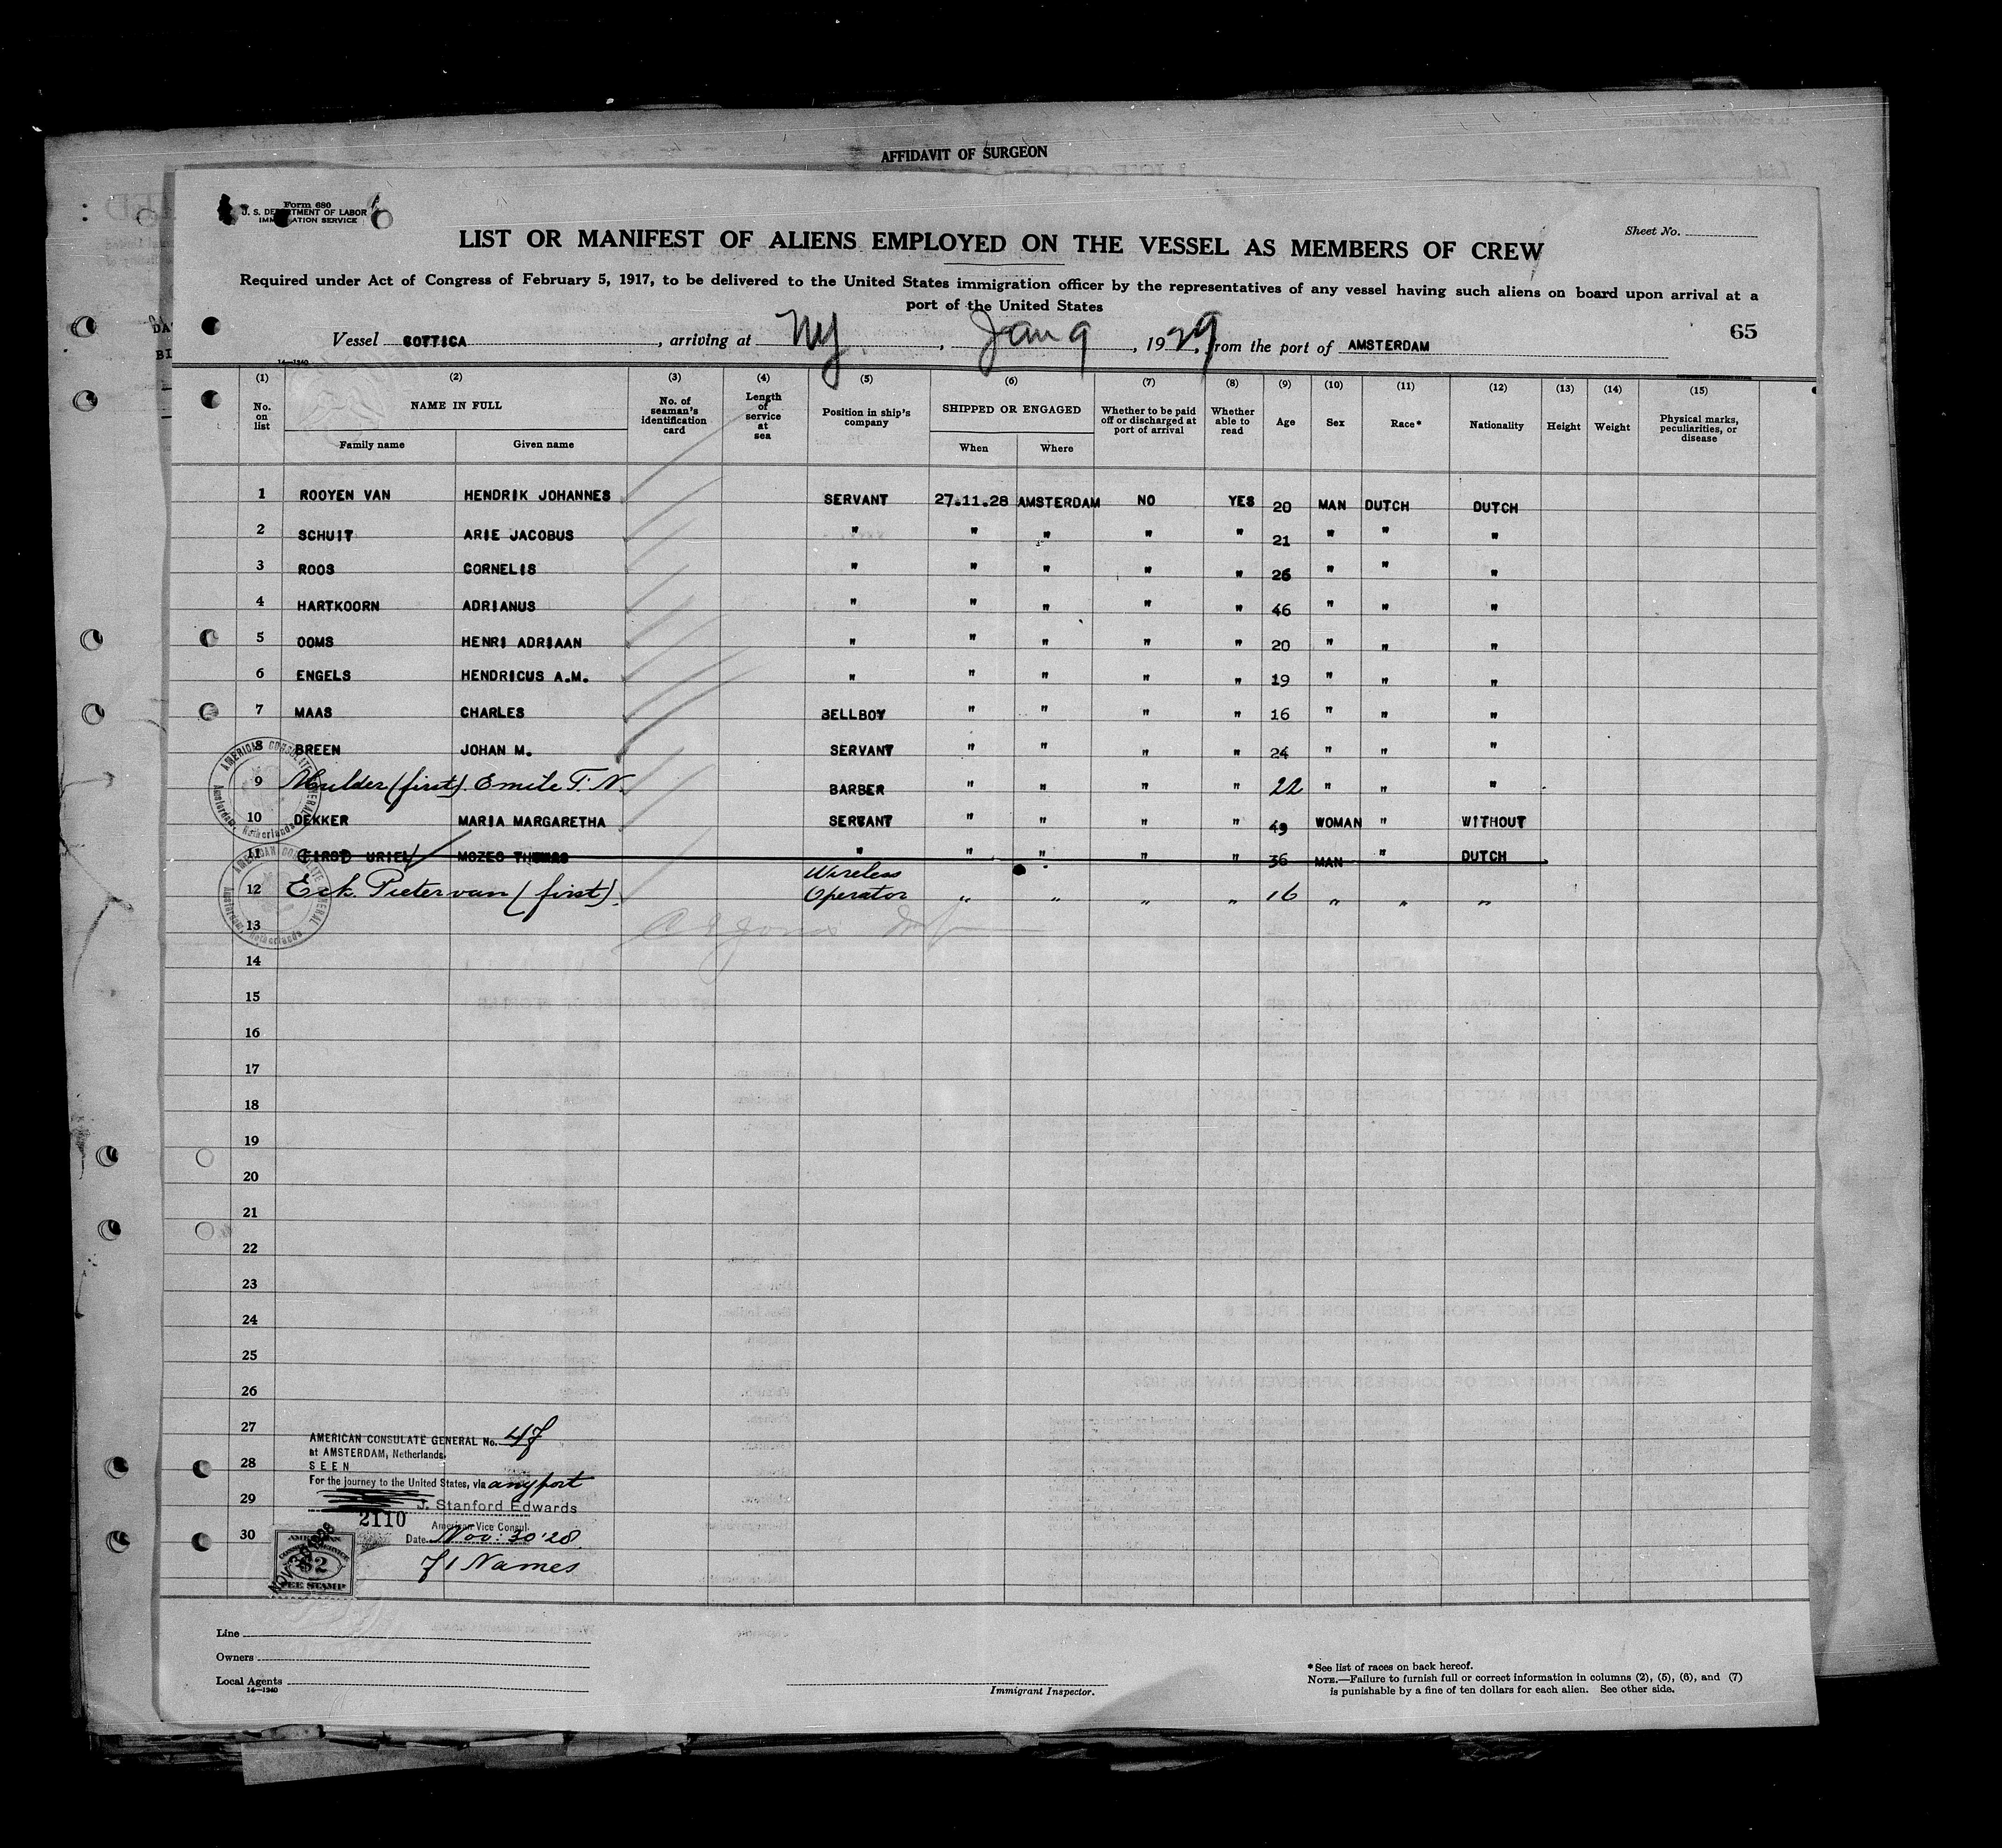 AFFIDAVIT OF SURGEON
Form 680
U. S. DEPARTMENT OF LABOR
IMMIGRATION SERVICE
Sheet No.
LIST OR MANIFEST OF ALIENS EMPLOYED ON THE VESSEL AS MEMBERS OF CREW
Required under Act of Congress of February 5, 1917, to be delivered to the United States immigration officer by the representatives of any vessel having such aliens on board upon arrival at a
port of the United States
65
Vessel COTTICA, arriving at NY, Jan 9, 1929, from the port of AMSTERDAM
14—1240
(1) (2) (3) (4) (5) (6) (7) (8) (9) (10) (11) (12) (13) (14) (15)
No. on list NAME IN FULL No. of seaman's identification card Length of service at sea Position in ship's company SHIPPED OR ENGAGED Whether to be paid off or discharged at port of arrival Whether able to read Age Sex Race* Nationality Height Weight Physical marks, peculiarities, or disease
Family name Given name When Where
1 ROOYEN VAN HENDRIK JOHANNES SERVANT 27.11.28 AMSTERDAM NO YES 20 MAN DUTCH DUTCH
2 SCHUIT ARIE JACOBUS " " " " " 21 " " "
3 ROOS CORNELIS " " " " " 26 " " "
4 HARTKOORN ADRIANUS " " " " " 46 " " "
5 OOMS HENRI ADRIAAN " " " " " 20 " " "
6 ENGELS HENDRICUS A.M. " " " " " 19 " " "
7 MAAS CHARLES BELLBOY " " " " 16 " " "
8 BREEN JOHAN M. SERVANT " " " " 24 " " "
9 Mulder (first) Emile T. N. BARBER " " " " 22 " " "
10 DEKKER MARIA MARGARETHA SERVANT " " " " 49 WOMAN " WITHOUT
11 (FIRST URIEL MOZES THOMAS " " " " " 36 MAN " DUTCH
12 Eck Pieter van (first) Wireless Operator " " " " 16 " " "
13
14
15
16
17
18
19
20
21
22
23
24
25
26
27
28
29
30
AMERICAN CONSULATE GENERAL
Amsterdam, Netherlands
AMERICAN CONSULATE GENERAL
Amsterdam, Netherlands
AMERICAN CONSULATE GENERAL No. 47
at AMSTERDAM, Netherlands.
SEEN
For the journey to the United States, via any port
J. Stanford Edwards
2110
American Vice Consul.
Date Nov: 30 '28.
71 Names
AMERICAN
CONSULAR SERVICE
$2
FEE STAMP
Line
Owners
Local Agents
14—1240
Immigrant Inspector.
*See list of races on back hereof.
NOTE.—Failure to furnish full or correct information in columns (2), (5), (6), and (7)
is punishable by a fine of ten dollars for each alien. See other side.